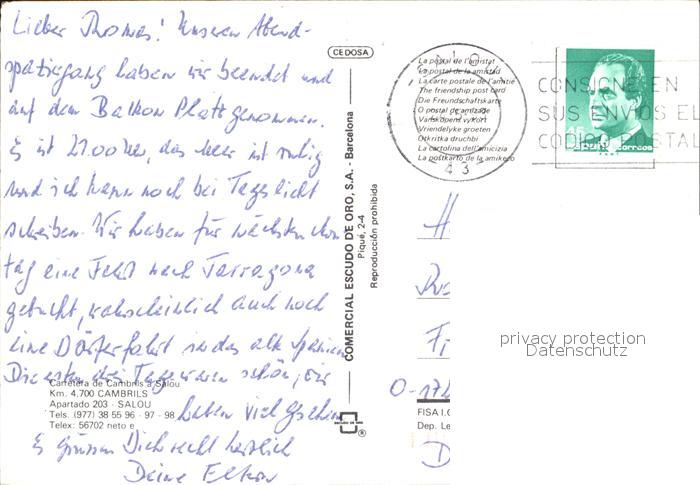 Lieber Thomas! Unseren Abend-
spaziergang haben wir beendet und
auf dem Balkon Platz genommen.
Es ist 21.00 Uhr, das Meer ist ruhig
und ich kann noch bei Tageslicht
schreiben. Wir haben für nächsten Mon
tag eine Fahrt nach Tarragona
gebucht, wahrscheinlich auch noch
eine Dörferfahrt in das alte Spanien
Die ersten drei Tage waren schön, wir
haben viel gesehen
Es grüssen Dich recht herzlich
Deine Eltern
Carretera de Cambrils a Salou
Km. 4.700 CAMBRILS
Apartado 203 - SALOU
Tels. (977) 38 55 96 - 97 - 98
Telex: 56702 neto e
CEDOSA
COMERCIAL ESCUDO DE ORO, S.A. - Barcelona
Piqué, 2-4
Reproducción prohibida
ESCUDO DE ORO
®
La postal de l'amistat
La postal de la amistad
La carte postale de l'amitié
The friendship post card
Die Freundschaftskarte
O postal da amizade
Vänskapens vykort
Vriendelyke groeten
Otkritka druchbi
La cartolina dell'amicizia
La postkarto de la amikeco
43
CONSIGNE EN
SUS ENVIOS EL
CODIGO POSTAL
45
España correos
H
Fr
D-172
FISA I.G
Dep. Le
D
privacy protection
Datenschutz